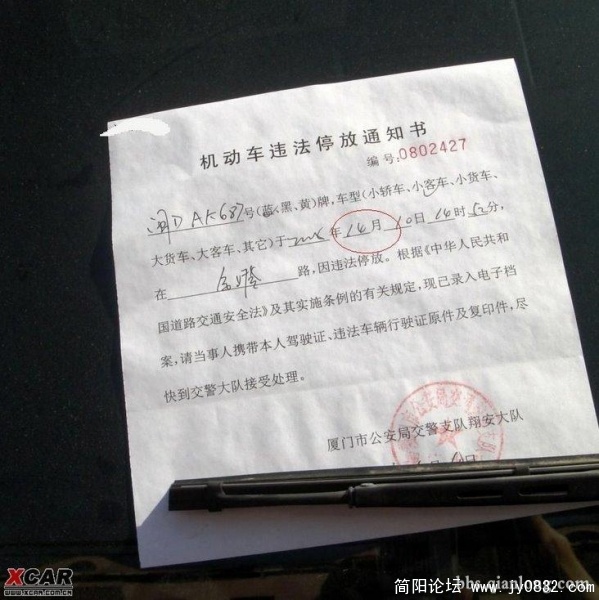 机动车违法停放通知书
编号:0802427
闽D AK687号(蓝、黑、黄)牌,车型(小轿车、小客车、小货车、
大货车、大客车、其它)于 年14月10日16时52分,
在 路,因违法停放。根据《中华人民共和
国道路交通安全法》及其实施条例的有关规定,现已录入电子档
案,请当事人携带本人驾驶证、违法车辆行驶证原件及复印件,尽
快到交警大队接受处理。
厦门市公安局交警支队翔安大队
XCAR
WWW.XCAR.COM.CN
bbs.qianlong.com
简阳论坛 www.jy0832.com